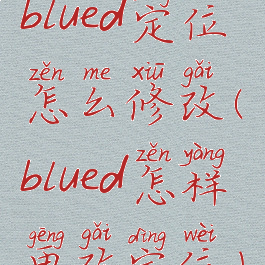 blued定位
zěn me xiū gǎi
怎么修改(
zěn yàng
blued怎样
gēng gǎi dìng wèi
更改定位)